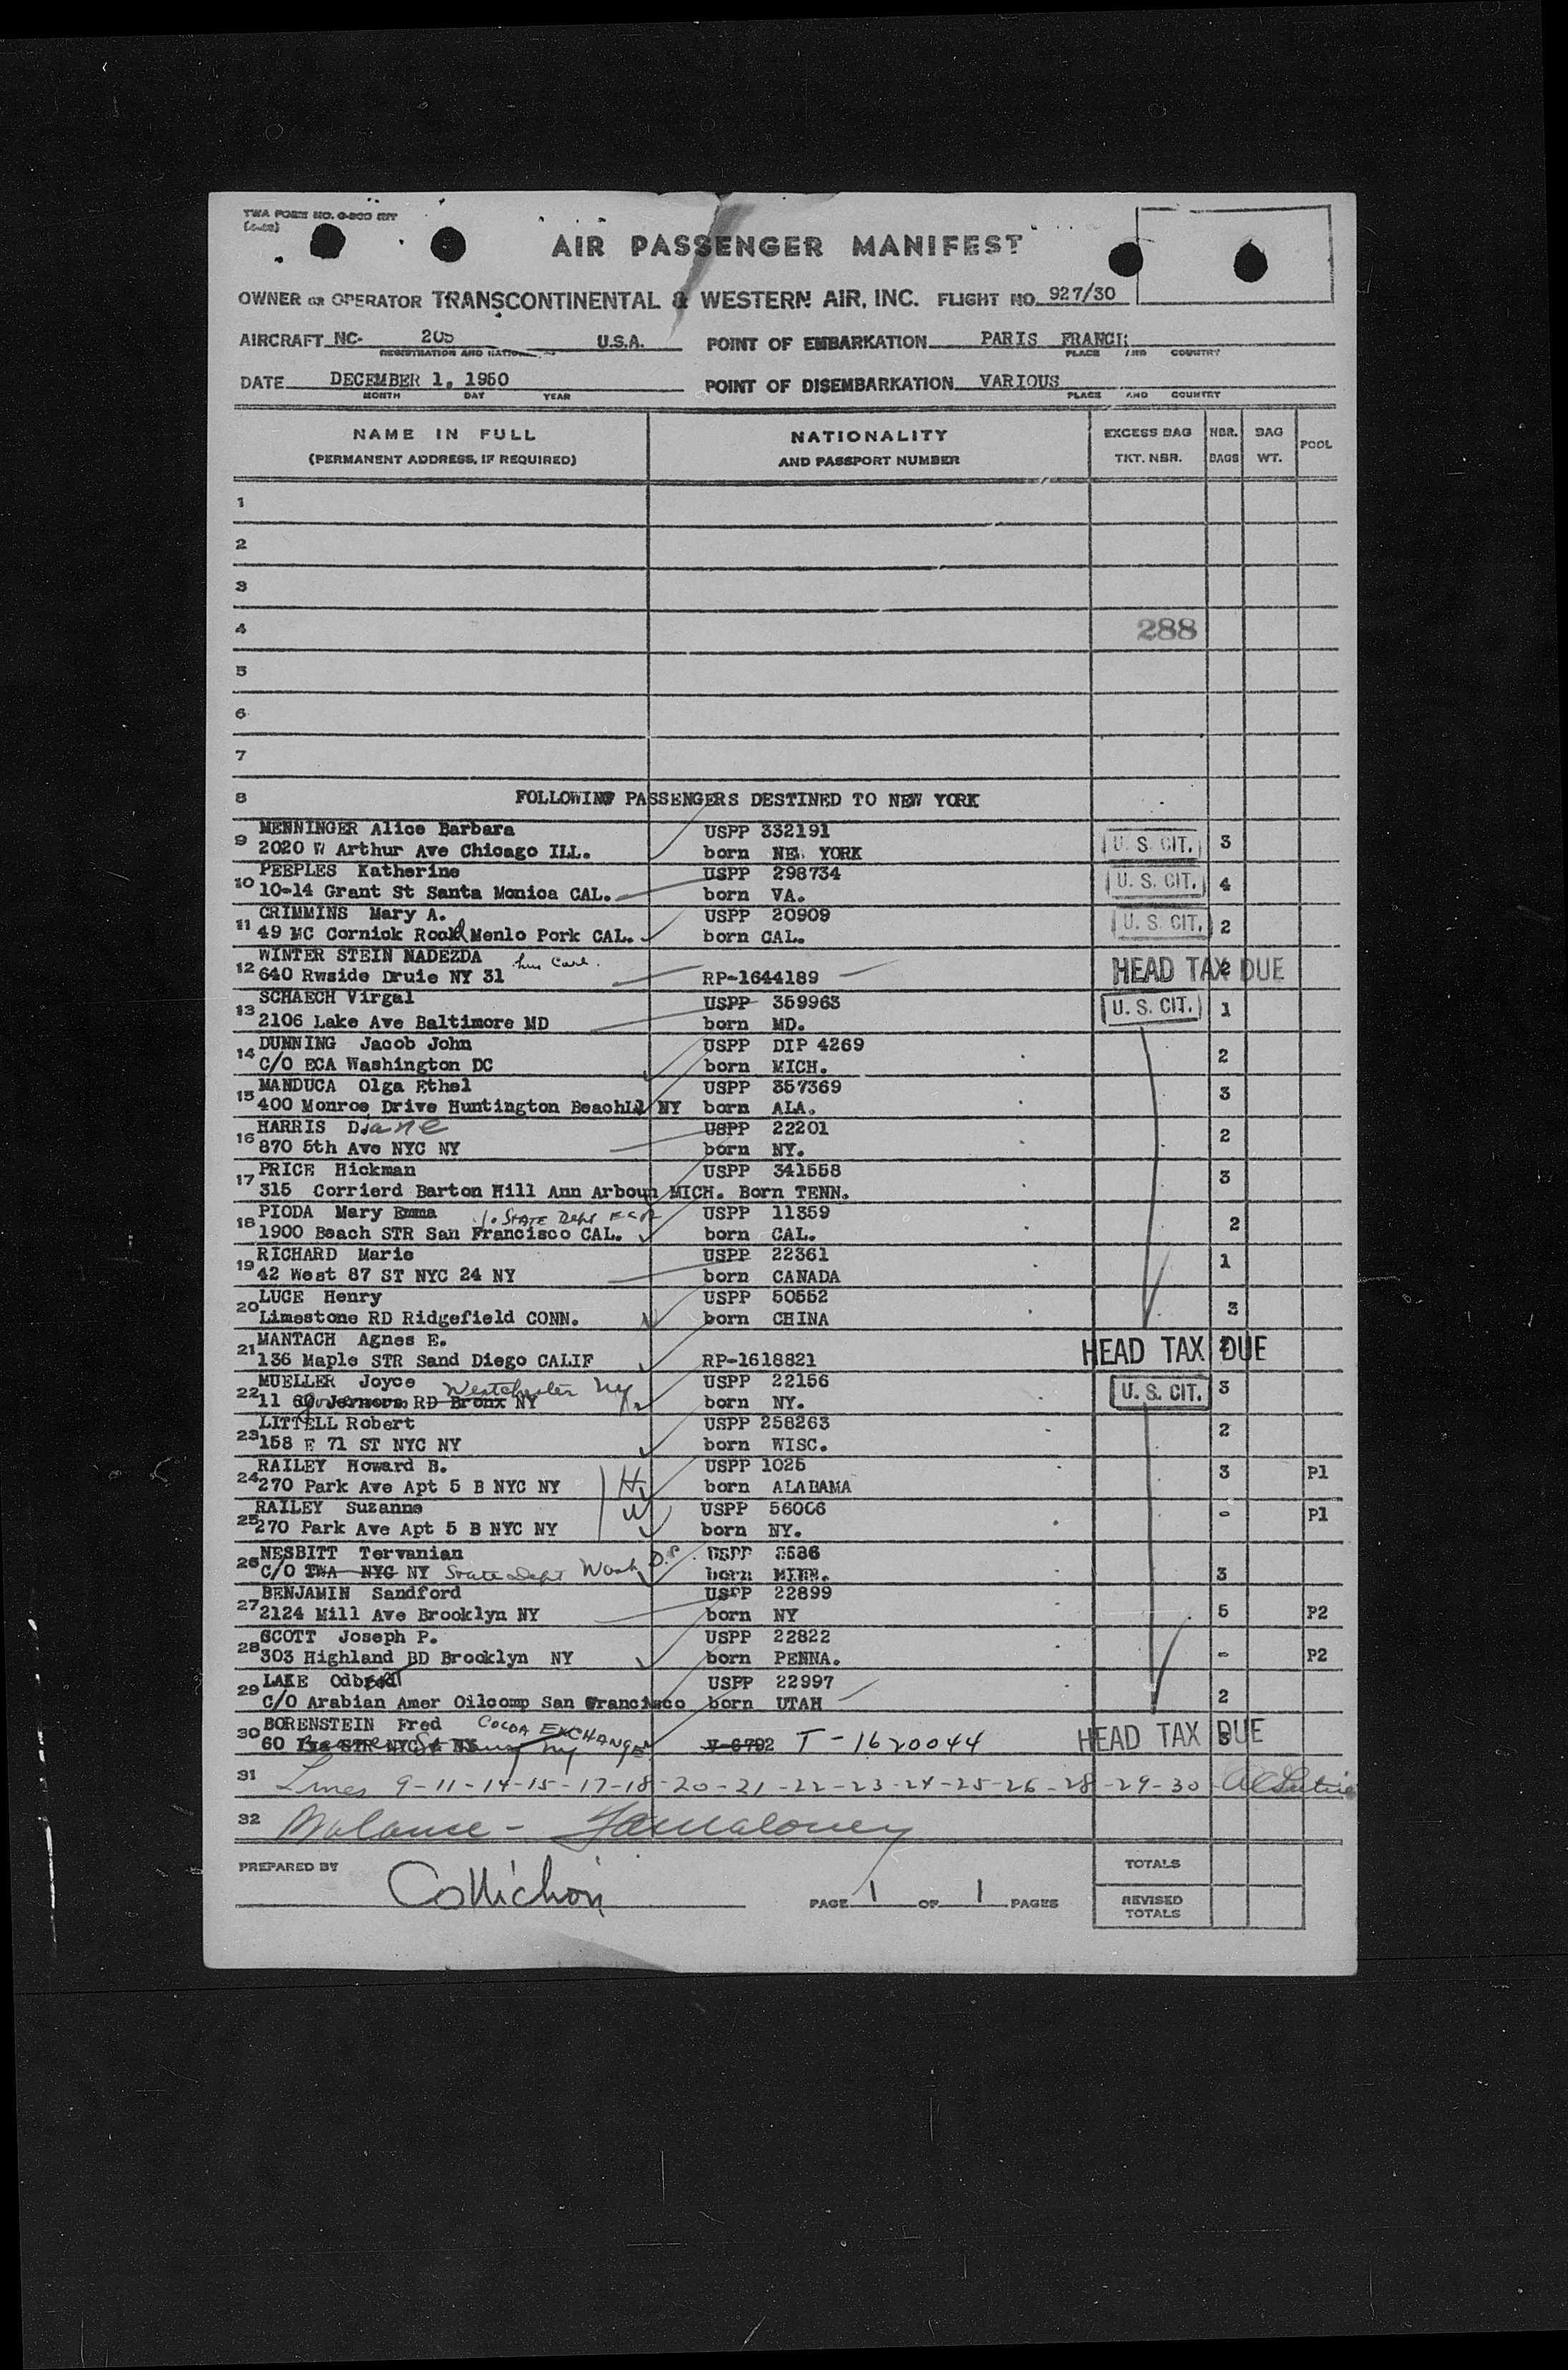 TWA FORM NO.
AIR PASSENGER MANIFEST
OWNER OR OPERATOR TRANSCONTINENTAL & WESTERN AIR, INC. FLIGHT NO. 927/30
AIRCRAFT NC- 205 U.S.A. POINT OF EMBARKATION PARIS FRANCE
REGISTRATION AND NATION PLACE AND COUNTRY
DATE DECEMBER 1, 1950 POINT OF DISEMBARKATION VARIOUS
MONTH DAY YEAR PLACE AND COUNTRY
NAME IN FULL NATIONALITY EXCESS BAG NBR. BAG POOL
(PERMANENT ADDRESS, IF REQUIRED) AND PASSPORT NUMBER TKT. NBR. BAGS WT.
1
2
3
4 288
5
6
7
8 FOLLOWING PASSENGERS DESTINED TO NEW YORK
MENNINGER Alice Barbara USPP 332191
9 2020 W Arthur Ave Chicago ILL. born NEW YORK U. S. CIT. 3
PEEPLES Katherine USPP 298734
10 10-14 Grant St Santa Monica CAL. born VA. U. S. CIT. 4
CRIMMINS Mary A. USPP 20909
11 49 MC Cornick Road Menlo Pork CAL. born CAL. U. S. CIT. 2
WINTER STEIN NADEZDA
12 640 Rwside Druie NY 31 RP-1644189 HEAD TAX DUE 2
SCHAECH Virgal USPP 359963
13 2106 Lake Ave Baltimore MD born MD. U. S. CIT. 1
DUNNING Jacob John USPP DIP 4269
14 C/O ECA Washington DC born MICH. 2
MANDUCA Olga Ethel USPP 357369
15 400 Monroe Drive Huntington BeachLI NY born ALA. 3
HARRIS Diane USPP 22201
16 870 5th Ave NYC NY born NY. 2
PRICE Hickman USPP 341558
17 315 Corrierd Barton Hill Ann Arboun MICH. Born TENN. 3
PIODA Mary Emma % STATE Dept USPP 11359
18 1900 Beach STR San Francisco CAL. born CAL. 2
RICHARD Marie USPP 22361
19 42 West 87 ST NYC 24 NY born CANADA 1
LUCE Henry USPP 50552
20 Limestone RD Ridgefield CONN. born CHINA 3
MANTACH Agnes E.
21 136 Maple STR Sand Diego CALIF RP-1618821 HEAD TAX DUE
MUELLER Joyce Westchester Ny USPP 22156
22 11 Governors RD Bronx NY born NY. U. S. CIT. 3
LITTELL Robert USPP 258263
23 158 E 71 ST NYC NY born WISC. 2
RAILEY Howard B. H USPP 1025
24 270 Park Ave Apt 5 B NYC NY born ALABAMA 3 P1
RAILEY Suzanne W USPP 56006
25 270 Park Ave Apt 5 B NYC NY born NY. - P1
NESBITT Tervanian USPP
26 C/O TWA NYC NY State Dept Wash D.C. born MINN. 3
BENJAMIN Sandford USPP 22899
27 2124 Mill Ave Brooklyn NY born NY 5 P2
SCOTT Joseph P. USPP 22822
28 303 Highland BD Brooklyn NY born PENNA. - P2
LAKE USPP 22997
29 C/O Arabian Amer Oilcomp San Francisco born UTAH 2
BORENSTEIN Fred COCOA EXCHANGE
30 60 STR NYC NY V-6792 T-1620044 HEAD TAX DUE
31 Lines 9-11-14-15-17-18-20-21-22-23-24-25-26-28-29-30
32 Balance -
PREPARED BY TOTALS
PAGE 1 OF 1 PAGES REVISED TOTALS